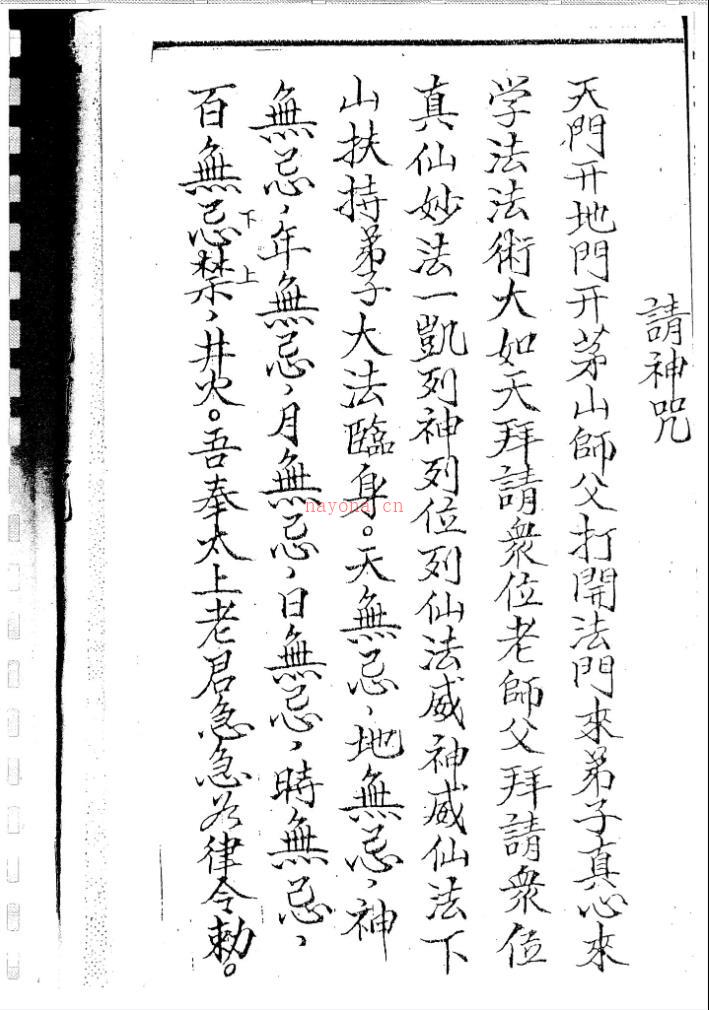 請神咒
天門开地門开茅山師父打開法門來弟子真心來
学法法術大如天拜請衆位老師父拜請衆位
真仙妙法一凱列神列位列仙法威神威仙法下
山扶持弟子大法臨身。天無忌，地無忌，神
無忌，年無忌，月無忌，日無忌，時無忌，
百無忌禁，井火。吾奉太上老君急急如律令勅。
下
上
nayona.cn